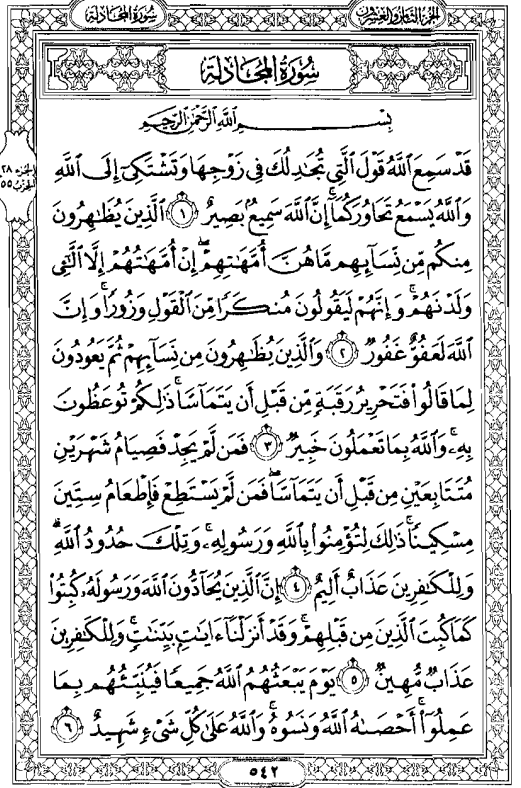 الجزء الثامن والعشرون
سورة المجادلة
سُورَةُ المُجَادلة
بِسْمِ اللَّهِ الرَّحْمَٰنِ الرَّحِيمِ
قَدْ سَمِعَ اللَّهُ قَوْلَ الَّتِي تُجَادِلُكَ فِي زَوْجِهَا وَتَشْتَكِي إِلَى اللَّهِ
وَاللَّهُ يَسْمَعُ تَحَاوُرَكُمَا ۚ إِنَّ اللَّهَ سَمِيعٌ بَصِيرٌ ١ الَّذِينَ يُظَاهِرُونَ
مِنكُم مِّن نِّسَائِهِم مَّا هُنَّ أُمَّهَاتِهِمْ ۖ إِنْ أُمَّهَاتُهُمْ إِلَّا الَّٰئِي
وَلَدْنَهُمْ ۚ وَإِنَّهُمْ لَيَقُولُونَ مُنكَرًا مِّنَ الْقَوْلِ وَزُورًا ۚ وَإِنَّ
اللَّهَ لَعَفُوٌّ غَفُورٌ ٢ وَالَّذِينَ يُظَاهِرُونَ مِن نِّسَائِهِمْ ثُمَّ يَعُودُونَ
لِمَا قَالُوا فَتَحْرِيرُ رَقَبَةٍ مِّن قَبْلِ أَن يَتَمَاسَّا ۚ ذَٰلِكُمْ تُوعَظُونَ
بِهِ ۚ وَاللَّهُ بِمَا تَعْمَلُونَ خَبِيرٌ ٣ فَمَن لَّمْ يَجِدْ فَصِيَامُ شَهْرَيْنِ
مُتَتَابِعَيْنِ مِن قَبْلِ أَن يَتَمَاسَّا ۖ فَمَن لَّمْ يَسْتَطِعْ فَإِطْعَامُ سِتِّينَ
مِسْكِينًا ۚ ذَٰلِكَ لِتُؤْمِنُوا بِاللَّهِ وَرَسُولِهِ ۚ وَتِلْكَ حُدُودُ اللَّهِ ۗ
وَلِلْكَافِرِينَ عَذَابٌ أَلِيمٌ ٤ إِنَّ الَّذِينَ يُحَادُّونَ اللَّهَ وَرَسُولَهُ كُبِتُوا
كَمَا كُبِتَ الَّذِينَ مِن قَبْلِهِمْ ۚ وَقَدْ أَنزَلْنَا آيَاتٍ بَيِّنَاتٍ ۚ وَلِلْكَافِرِينَ
عَذَابٌ مُّهِينٌ ٥ يَوْمَ يَبْعَثُهُمُ اللَّهُ جَمِيعًا فَيُنَبِّئُهُم بِمَا
عَمِلُوا ۚ أَحْصَاهُ اللَّهُ وَنَسُوهُ ۚ وَاللَّهُ عَلَىٰ كُلِّ شَيْءٍ شَهِيدٌ ٦
الجزء ٢٨
الحزب ٥٥
٥٤٢